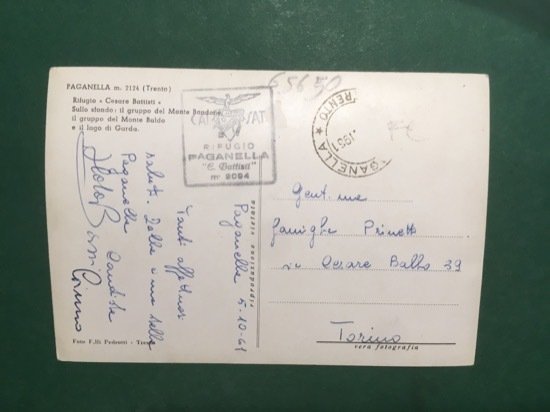 PAGANELLA m. 2124 (Trento)
Rifugio « Cesare Battisti »
Sullo sfondo: il gruppo del Monte Bondone,
il gruppo del Monte Baldo
e il lago di Garda.
65650
CAI SAT
RIFUGIO
PAGANELLA
"C. Battisti"
m 2094
PAGANELLA ★ TRENTO
1961
Paganella 5-10-61
Tanti affettuosi
saluti dalla cima della
Paganella
riproduzione vietata
Gent.ma
famiglia Prinetti
via Cesare Balbo 39
Torino
vera fotografia
Foto F.lli Pedrotti - Trento